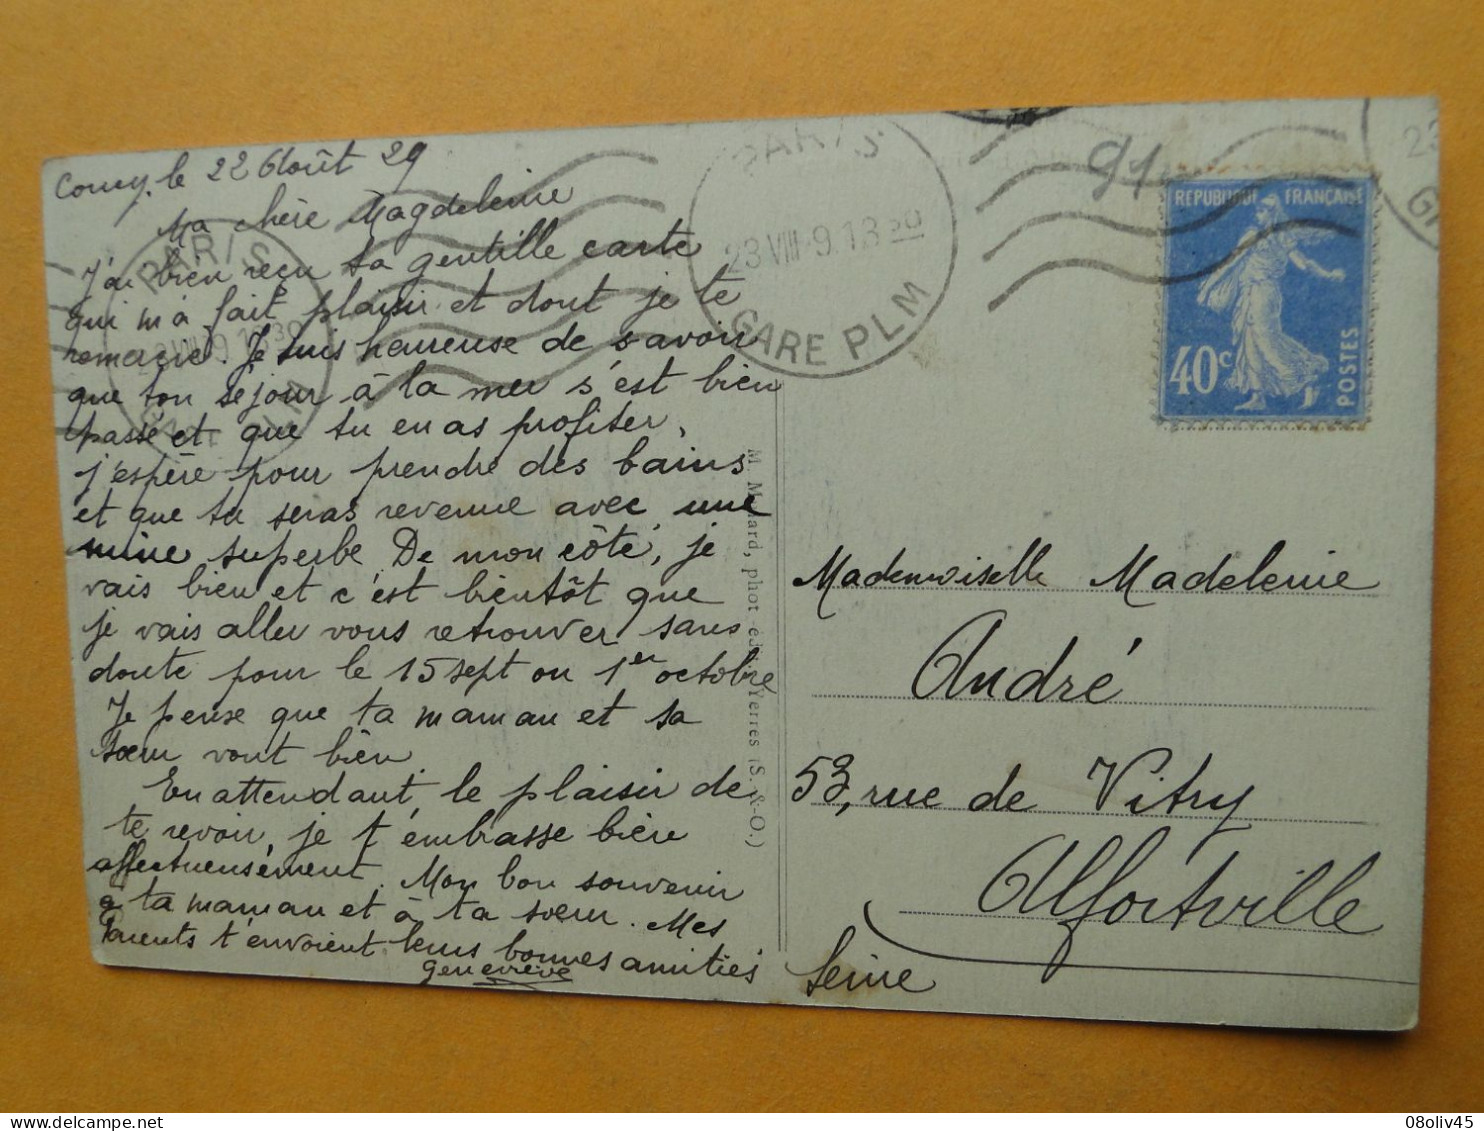 le 22 Août 29
Ma chère Magdeleine
J'ai bien reçu ta gentille carte
qui m'a fait plaisir et dont je te
remercie. Je suis heureuse de savoir
que ton séjour à la mer s'est bien
passé et que tu en as profiter,
j'espère pour prendre des bains
et que tu seras revenue avec une
mine superbe. De mon côté, je
vais bien et c'est bientôt que
je vais aller vous retrouver sans
doute pour le 15 sept ou 1er octobre
Je pense que ta maman et sa
sœur vont bien
En attendant le plaisir de
te revoir, je t'embrasse bien
affectueusement. Mon bon souvenir
a ta maman et à ta sœur. Mes
Parents t'envoient leurs bonnes amitiés
Geneviève
PARIS
GARE PLM
PARIS
23 VIII 9. 13 30
GARE PLM
91
RÉPUBLIQUE FRANÇAISE
40c
POSTES
phot-édit. Yerres (S.-&-O.)
Mademoiselle Madeleine
André
53, rue de Vitry
Alfortville
Seine
08oliv45